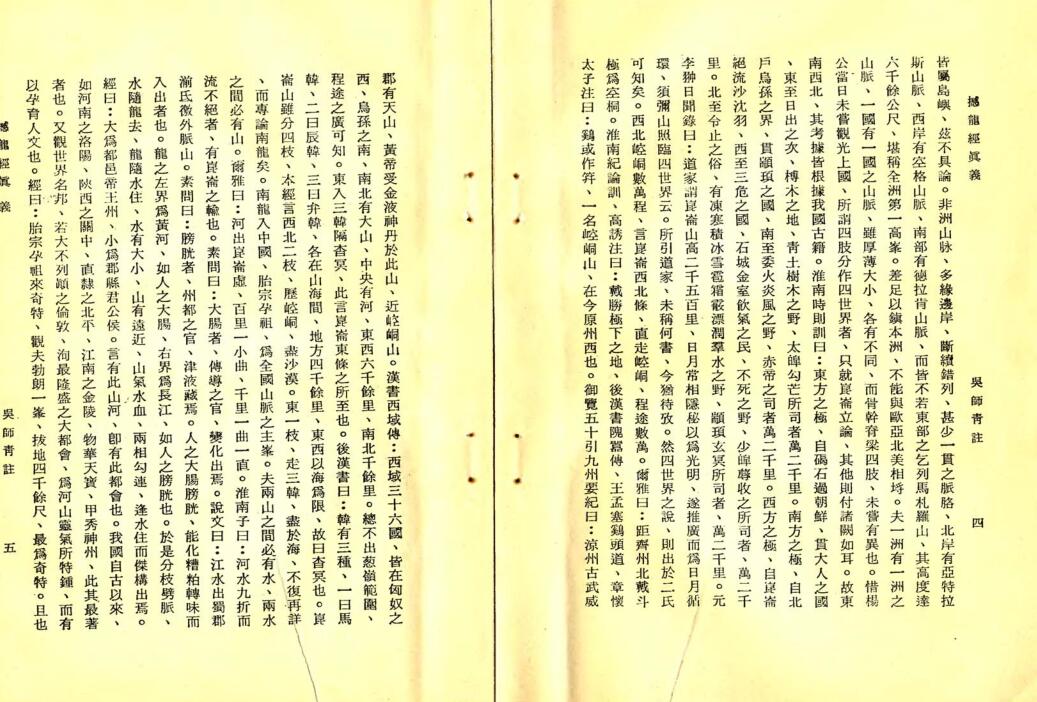 撼龍經眞義
吳師青註
四
皆屬島嶼、茲不具論。非洲山脉、多緣邊岸、斷續錯列、甚少一貫之脈胳、北岸有亞特拉
斯山脈、西岸有空格山脈、南部有德拉肯山脈、而皆不若東部之乞列馬札羅山、其高度達
六千餘公尺、堪稱全洲第一高峯。差足以鎭本洲、不能與歐亞北美相埓。夫一洲有一洲之
山脈、一國有一國之山脈、雖厚薄大小、各有不同、而骨幹脊梁四肢、未嘗有異也。惜楊
公當日未嘗觀光上國、所謂四肢分作四世界者、只就崑崙立論、其他則付諸闕如耳。故東
南西北、其考據皆根據我國古籍。淮南時則訓曰：東方之極、自碣石過朝鮮、貫大人之國
、東至日出之次、榑木之地、靑土樹木之野、太皥勾芒所司者萬二千里。南方之極、自北
戶烏孫之界、貫顓頊之國、南至委火炎風之野、赤帝之司者萬二千里。西方之極、自崑崙
絕流沙沈羽、西至三危之國、石城金室飲氣之民、不死之野、少皥蓐收之所司者、萬二千
里。北至令止之俗、有凍寒積冰雪雹霜霰漂潤羣水之野、顓頊玄冥所司者、萬二千里。元
李翀日聞錄曰：道家謂崑崙山高二千五百里、日月常相隱秘以爲光明、遂推廣而爲日月循
環、須彌山照臨四世界云。所引道家、未稱何書、今猶待攷。然四世界之說、則出於二氏
可知矣。西北崆峒數萬程、言崑崙西北條、直走崆峒、程途數萬。爾雅曰：距齊州北戴斗
極爲空桐。淮南紀論訓、高誘注曰：戴勝極下之地、後漢書隗囂傳、王孟塞鷄頭道、章懷
太子注曰：鷄或作筓、一名崆峒山、在今原州西也。御覽五十引九州要紀曰：涼州古武威
郡有天山、黃帝受金液神丹於此山、近崆峒山。漢書西域傳：西域三十六國、皆在匈奴之
西、烏孫之南、南北有大山、中央有河、東西六千餘里、南北千餘里。總不出葱嶺範圍、
程途之廣可知。東入三韓隔杳冥、此言崑崙東條之所至也。後漢書曰：韓有三種、一曰馬
韓、二曰辰韓、三曰弁韓、各在山海間、地方四千餘里、東西以海爲限、故曰杳冥也。崑
崙山雖分四枝、本經言西北二枝、歷崆峒、盡沙漠。東一枝、走三韓、盡於海、不復再詳
、而專論南龍矣。南龍入中國、胎宗孕祖、爲全國山脈之主峯。夫兩山之間必有水、兩水
之間必有山。爾雅曰：河出崑崙虛、百里一小曲、千里一曲一直。淮南子曰：河水九折而
流不絕者、有崑崙之輸也。素問曰：大腸者、傳導之官、變化出焉。說文曰：江水出蜀郡
湔氏徼外脈山。素問曰：膀胱者、州都之官、津液藏焉。人之大腸膀胱、能化糟粕轉味而
入出者也。龍之左界爲黃河、如人之大腸、右界爲長江、如人之膀胱也。於是分枝劈脈、
水隨龍去、龍隨水住、水有大小、山有遠近、山氣水血、兩相勾連、逢水住而傑構出焉。
經曰：大爲都邑帝王州、小爲郡縣君公侯。言有此山河、卽有此都會也。我國自古以來、
如河南之洛陽、陝西之關中、直隸之北平、江南之金陵、物華天寶、甲秀神州、此其最著
者也。又觀世界名邦、若大不列顚之倫敦、洵最隆盛之大都會、爲河山靈氣所特鍾、而有
以孕育人文也。經曰：胎宗孕祖來奇特、觀夫勃朗一峯、拔地四千餘尺、最爲奇特。且也
撼龍經眞義
吳師青註
五